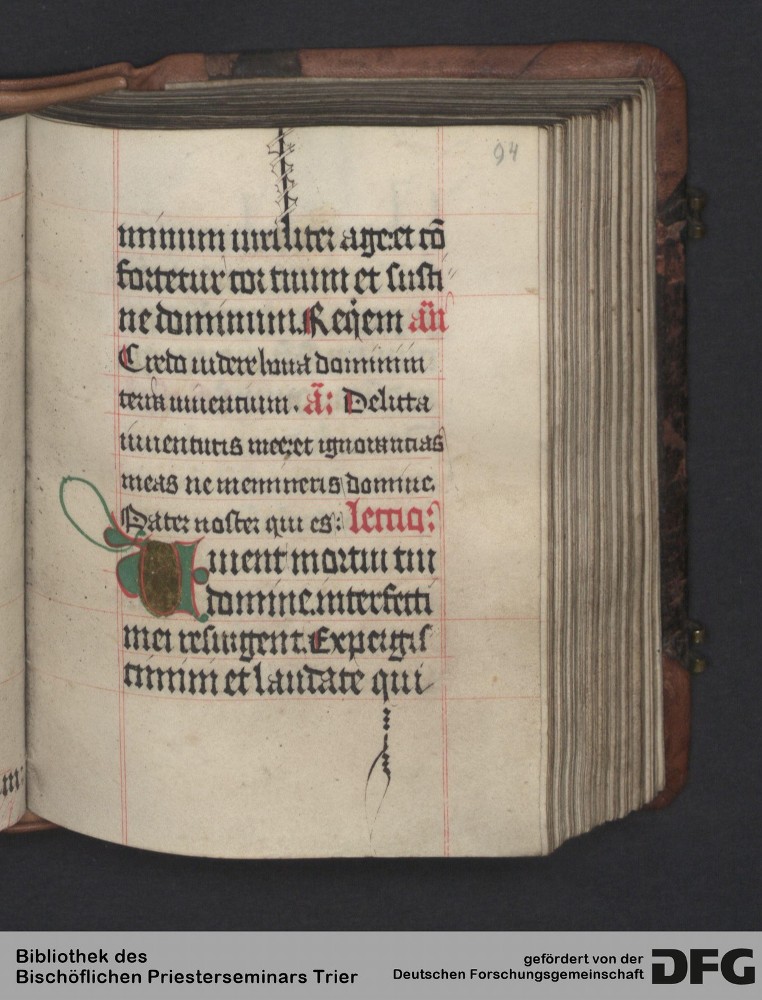 94
minum viriliter age: et cō
fortetur cor tuum et susti
ne dominum. Req̄em an̄
Credo videre bona domini in
terra viuentium. ā: Delicta
iuuentutis mee: et ignorantias
meas ne memineris domine.
Pater noster qui es: lectio:
Viuent mortui tui
domine. interfecti
mei resurgent. Expergis
cimini et laudate qui
m:
Bibliothek des
Bischöflichen Priesterseminars Trier
gefördert von der
Deutschen Forschungsgemeinschaft
DFG